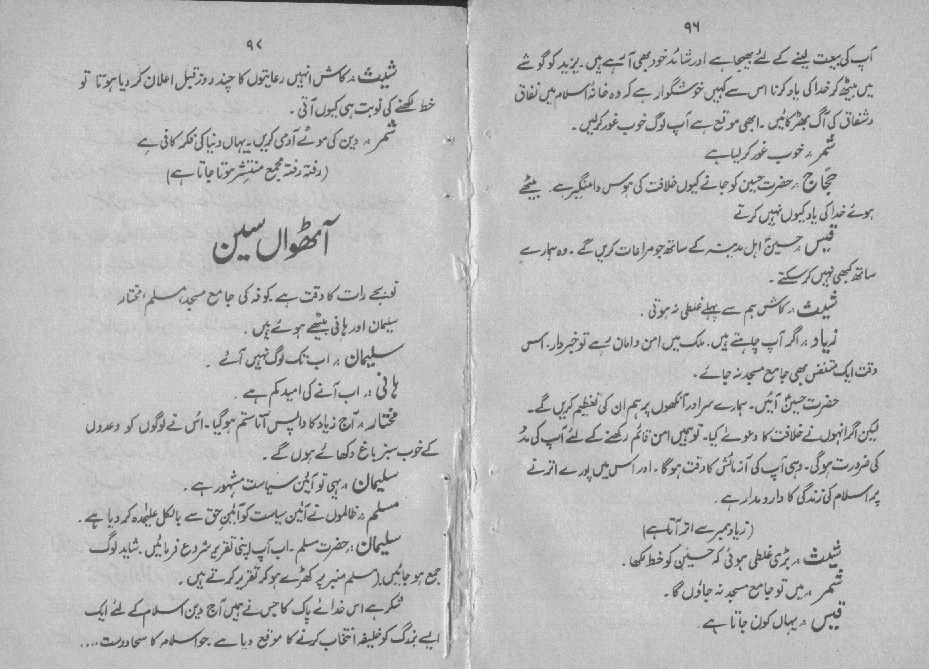 ۹۶
آپ کی بیعت لینے کے لئے بھیجا ہے اور شائد خود بھی آتے ہیں۔ یزید کو گوشے
میں بیٹھ کر خدا کی یاد کرنا اس سے کہیں خوشگوار ہے کہ وہ خانۂ اسلام میں نفاق
و شفاق کی آگ بھڑکائیں۔ ابھی موقع ہے آپ لوگ خوب غور کر لیں۔
شمر :۔ خوب غور کر لیا ہے
حجاج :۔ حضرت حسین کو جانے کیوں خلافت کی ہوس دامنگیر ہے۔ بیٹھے
ہوئے خدا کی یاد کیوں نہیں کرتے
قیس :۔ حسینؑ اہل مدینہ کے ساتھ جو مراعات کریں گے۔ وہ ہمارے
ساتھ کبھی نہیں کر سکتے۔
شیث :۔ کاش ہم سے پہلے غلطی نہ ہوتی۔
زیاد :۔ اگر آپ چاہتے ہیں۔ ملک میں امن و امان رہے تو خبردار۔ اس
وقت ایک متنفس بھی جامع مسجد نہ جائے۔
حضرت حسینؑ آئیں۔ ہمارے سر اور آنکھوں پر ہم ان کی تعظیم کریں گے۔
لیکن اگر انہوں نے خلافت کا دعوےٰ کیا۔ تو ہمیں امن قائم رکھنے کے لئے آپ کی مدد
کی ضرورت ہوگی۔ وہی آپ کی آزمائش کا وقت ہوگا۔ اور اس میں پورے اترنے
پر اسلام کی زندگی کا دارومدار ہے۔
(زیاد ممبر سے اترتا ہے)
شیث :۔ بڑی غلطی ہوئی کہ حسینؑ کو خط لکھا۔
شمر :۔ میں تو جامع مسجد نہ جاؤں گا۔
قیس :۔ یہاں کون جاتا ہے
۹۷
شیث :۔ کاش انہیں رعایتوں کا چند روز قبل اعلان کر دیا ہوتا تو
خط لکھنے کی نوبت ہی کیوں آتی۔
شمر :۔ دین کی موٹے آدمی کریں۔ یہاں دنیا کی فکر کافی ہے
(رفتہ رفتہ مجمع منتشر ہوتا جاتا ہے)
آٹھواں سین
نو بجے رات کا وقت ہے کوفہ کی جامع مسجد، مسلم، مختار
سلیمان اور ہانی بیٹھے ہوئے ہیں۔
سلیمان :۔ اب تک لوگ نہیں آئے۔
ہانی :۔ اب آنے کی امید کم ہے
مختار :۔ آج زیاد کا واپس آنا ستم ہو گیا۔ اس نے لوگوں کو وعدوں
کے خوب سبز باغ دکھائے ہوں گے۔
سلیمان :۔ یہی تو آئین سیاست مشہور ہے۔
مسلم :۔ ظالموں نے آئین سیاست کو آئین حق سے بالکل علیحدہ کر دیا ہے۔
سلیمان :۔ حضرت مسلم۔ اب آپ اپنی تقریر شروع فرمائیں۔ شاید لوگ
جمع ہو جائیں (مسلم منبر پر کھڑے ہو کر تقریر کرتے ہیں۔
شکر ہے اس خدائے پاک کا جس نے ہمیں آج دین اسلام کے لئے ایک
ایسے بزرگ کو خلیفہ انتخاب کرنے کا موقع دیا ہے جو اسلام کا سچا دوست....